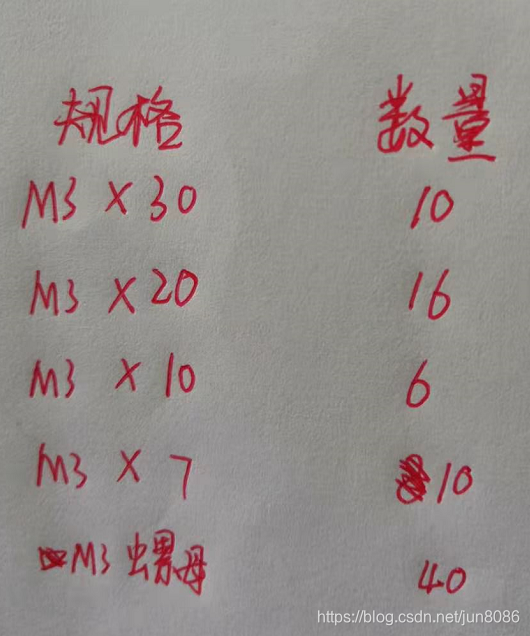 规格 数量
M3 × 30 10
M3 × 20 16
M3 × 10 6
M3 × 7 10
M3 螺母 40
https://blog.csdn.net/jun8086